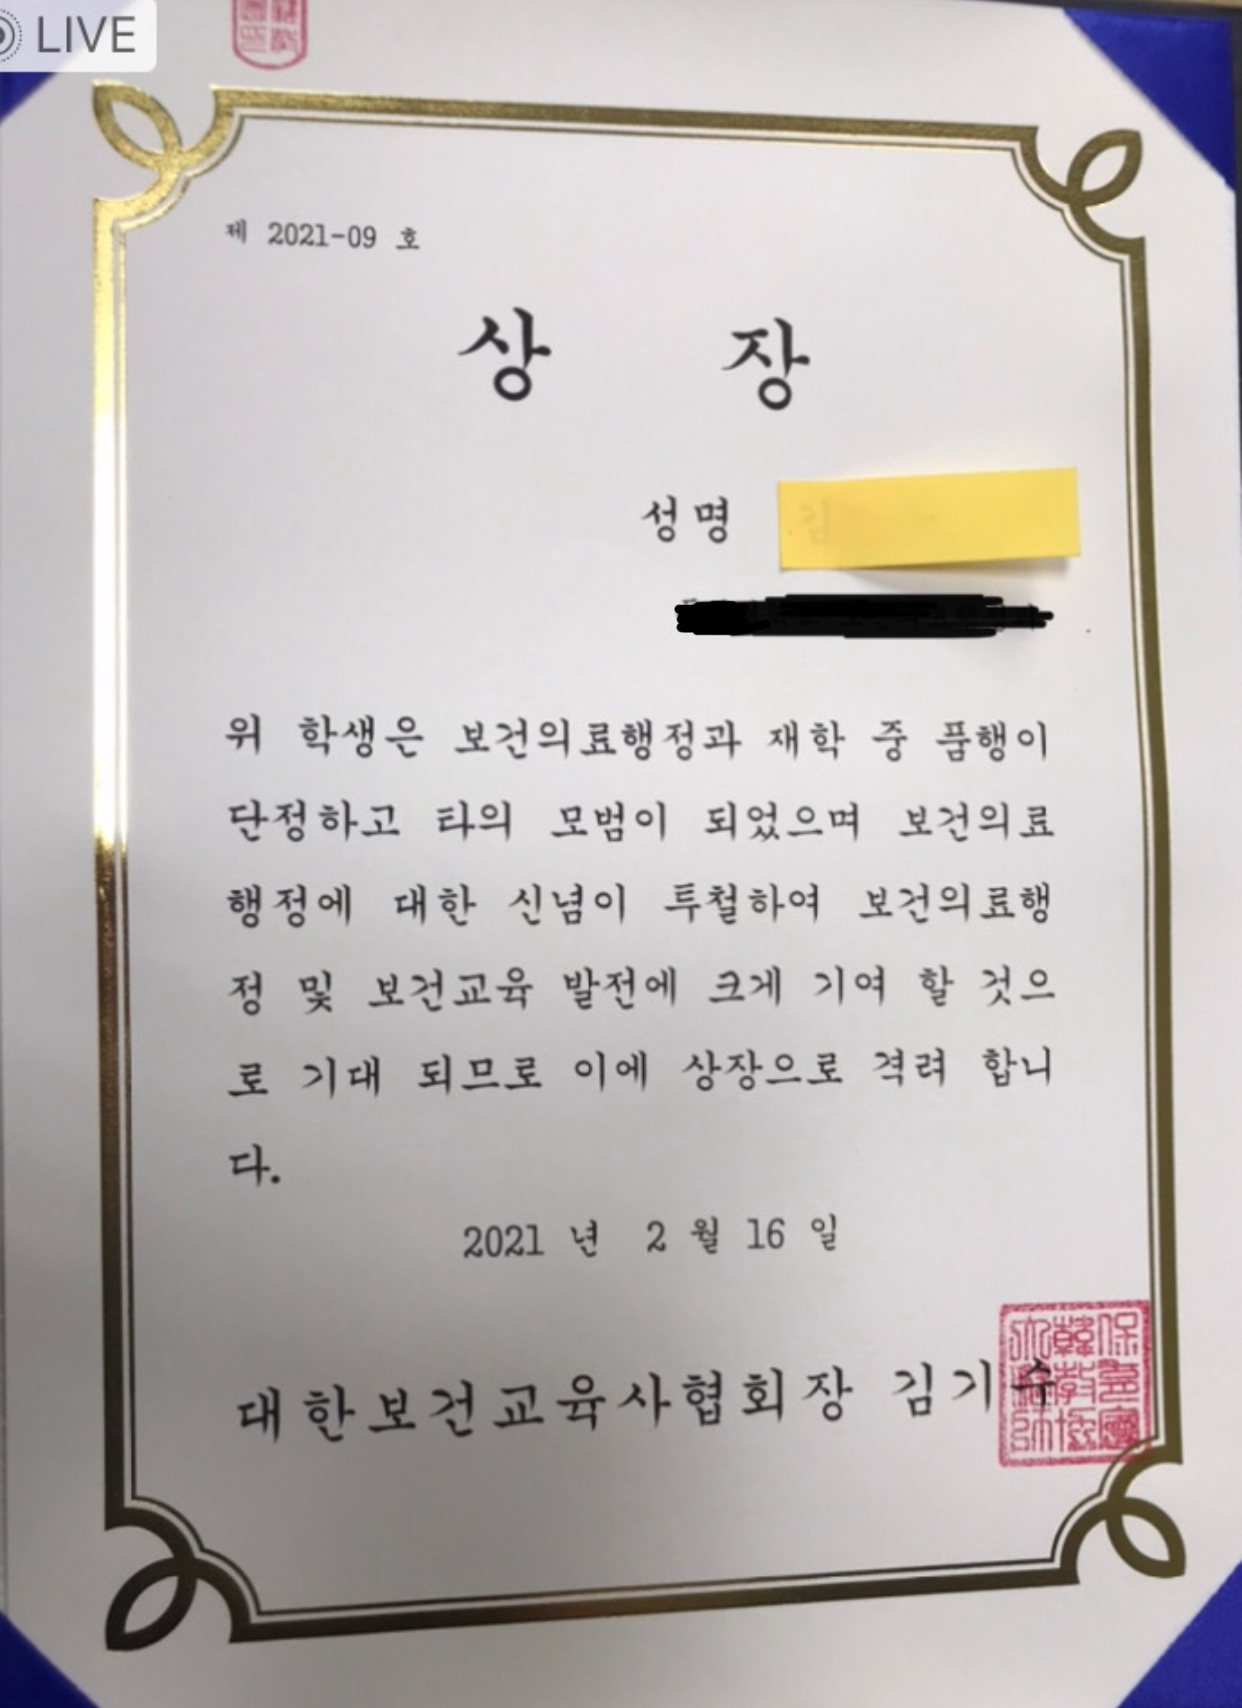 LIVE
제 2021-09 호
상 장
성명
위 학생은 보건의료행정과 재학 중 품행이
단정하고 타의 모범이 되었으며 보건의료
행정에 대한 신념이 투철하여 보건의료행
정 및 보건교육 발전에 크게 기여 할 것으
로 기대 되므로 이에 상장으로 격려 합니
다.
2021 년 2 월 16 일
대한보건교육사협회장 김기수